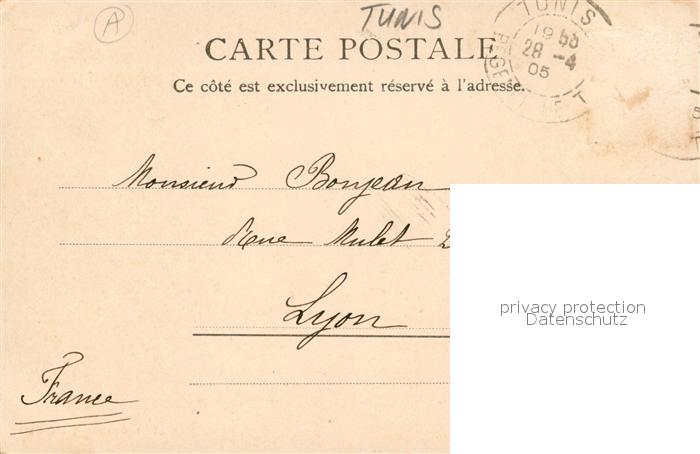 A
TUNIS
TUNIS
19
28 -4
05
CARTE POSTALE
Ce côté est exclusivement réservé à l'adresse.
Monsieur Bonjean
Rue Mulet 2
Lyon
France
privacy protection
Datenschutz